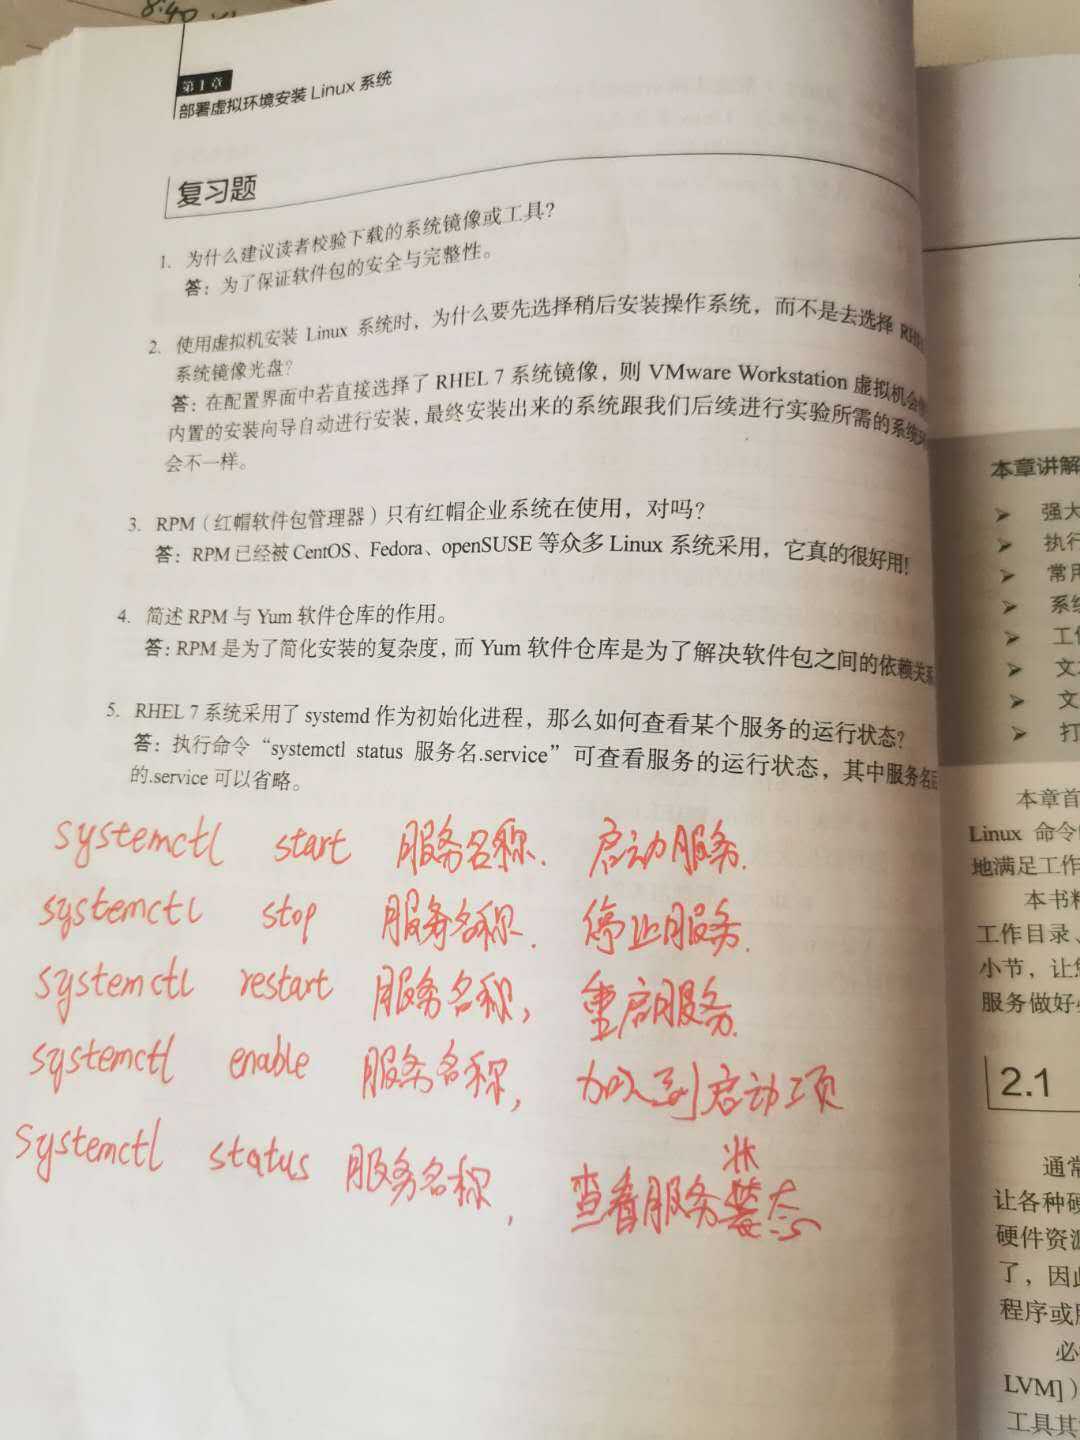 8:40
第1章
部署虚拟环境安装 Linux 系统
复习题
1. 为什么建议读者校验下载的系统镜像或工具？
答：为了保证软件包的安全与完整性。
2. 使用虚拟机安装 Linux 系统时，为什么要先选择稍后安装操作系统，而不是去选择 RHEL
系统镜像光盘？
答：在配置界面中若直接选择了 RHEL 7 系统镜像，则 VMware Workstation 虚拟机会
内置的安装向导自动进行安装，最终安装出来的系统跟我们后续进行实验所需的系统
会不一样。
3. RPM（红帽软件包管理器）只有红帽企业系统在使用，对吗？
答：RPM 已经被 CentOS、Fedora、openSUSE 等众多 Linux 系统采用，它真的很好用！
4. 简述 RPM 与 Yum 软件仓库的作用。
答：RPM 是为了简化安装的复杂度，而 Yum 软件仓库是为了解决软件包之间的依赖关系
5. RHEL 7 系统采用了 systemd 作为初始化进程，那么如何查看某个服务的运行状态？
答：执行命令“systemctl status 服务名.service”可查看服务的运行状态，其中服务名后
的.service 可以省略。
systemctl start 服务名称. 启动服务.
systemctl stop 服务名称. 停止服务.
systemctl restart 服务名称, 重启服务.
systemctl enable 服务名称, 加入到启动项
systemctl status 服务名称, 查看服务状态
本章讲解
➤ 强大
➤ 执行
➤ 常用
➤ 系统
➤ 工作
➤ 文本
➤ 文
➤ 打
本章首
Linux 命令
地满足工作
本书精
工作目录、
小节，让
服务做好
2.1
通常
让各种硬
硬件资源
了，因此
程序或
必
LVM]）
工具其